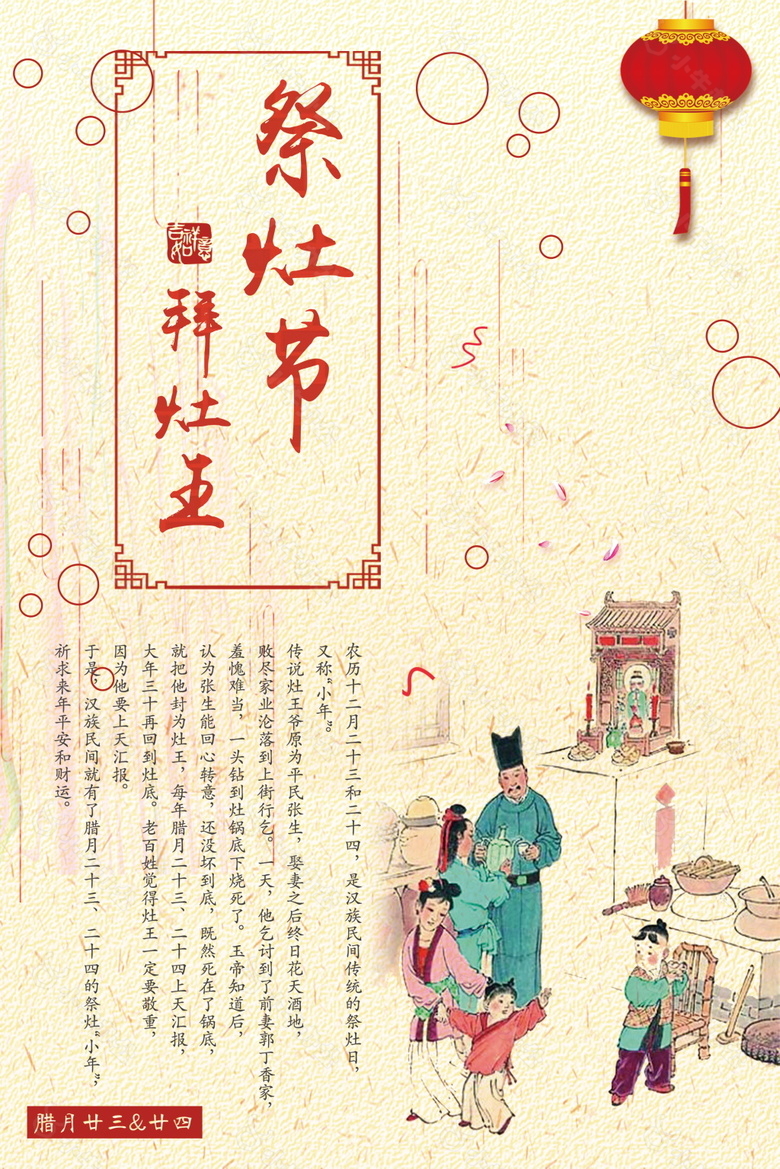 祭灶节
吉祥如意
拜灶王
农历十二月二十三和二十四，是汉族民间传统的祭灶日，
又称“小年”。
传说灶王爷原为平民张生，娶妻之后终日花天酒地，
败尽家业沦落到上街行乞。一天，他乞讨到了前妻郭丁香家，
羞愧难当，一头钻到灶锅底下烧死了。玉帝知道后，
认为张生能回心转意，还没坏到底，既然死在了锅底，
就把他封为灶王，每年腊月二十三、二十四上天汇报，
大年三十再回到灶底。老百姓觉得灶王一定要敬重，
因为他要上天汇报。
于是，汉族民间就有了腊月二十三、二十四的祭灶“小年”，
祈求来年平安和财运。
腊月廿三&廿四